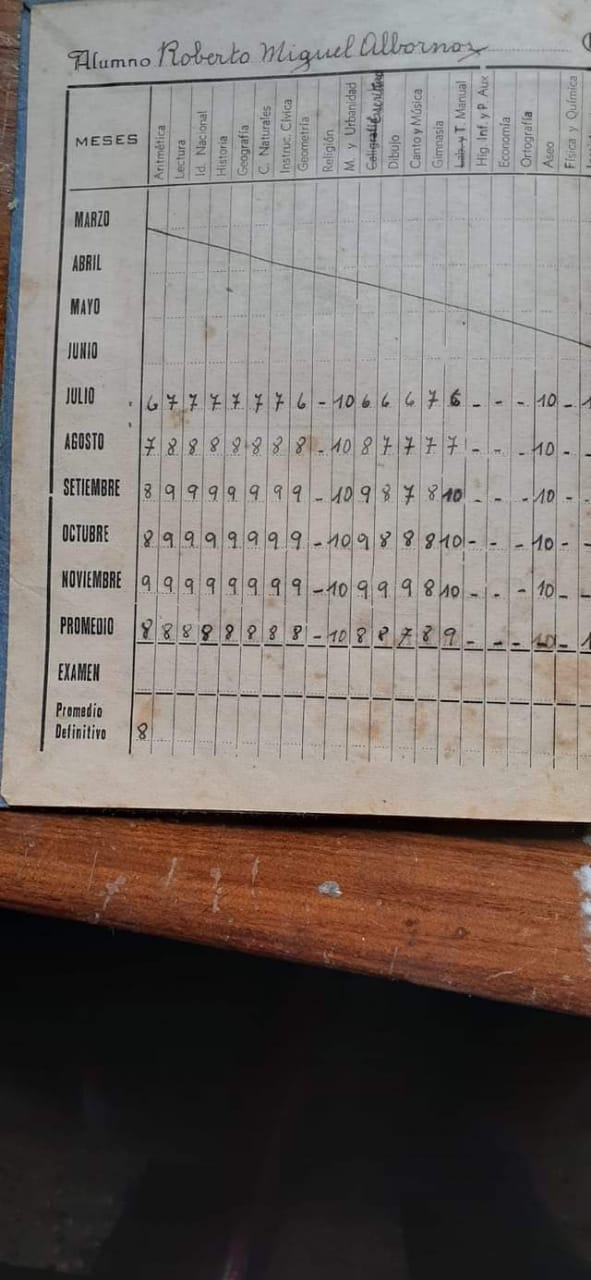 Alumno Roberto Miguel Albornoz
MESES Aritmética Lectura Id. Nacional Historia Geografía C. Naturales Instruc. Cívica Geometría Religión M. y Urbanidad Caligrafía Escritura Dibujo Canto y Música Gimnasia Lab. y T. Manual Hig. Inf. y P. Aux Economía Ortografía Aseo Física y Química
MARZO
ABRIL
MAYO
JUNIO
JULIO 6 7 7 7 7 7 7 6 - 10 6 6 6 7 6 - - - 10 - 1
AGOSTO 7 8 8 8 8 8 8 8 - 10 8 7 7 7 7 - - - 10 - -
SETIEMBRE 8 9 9 9 9 9 9 9 - 10 9 8 7 8 10 - - - 10 - -
OCTUBRE 8 9 9 9 9 9 9 9 - 10 9 8 8 8 10 - - - 10 - -
NOVIEMBRE 9 9 9 9 9 9 9 9 - 10 9 9 9 8 10 - - - 10 - -
PROMEDIO 8 8 8 8 8 8 8 8 - 10 8 8 7 8 9 - - - 10 - 1
EXAMEN
Promedio
Definitivo 8